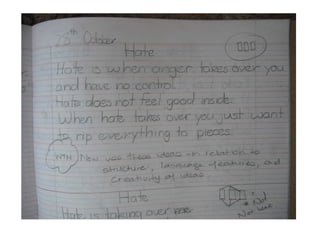 28th October
Hate
Hate is when anger takes over you
and have no control.
Hate does not feel good inside.
When hate takes over you just want
to rip everything to pieces.
Now use these ideas in relation to
structure, language features, and
creativity of ideas
Hate
Hate is taking over